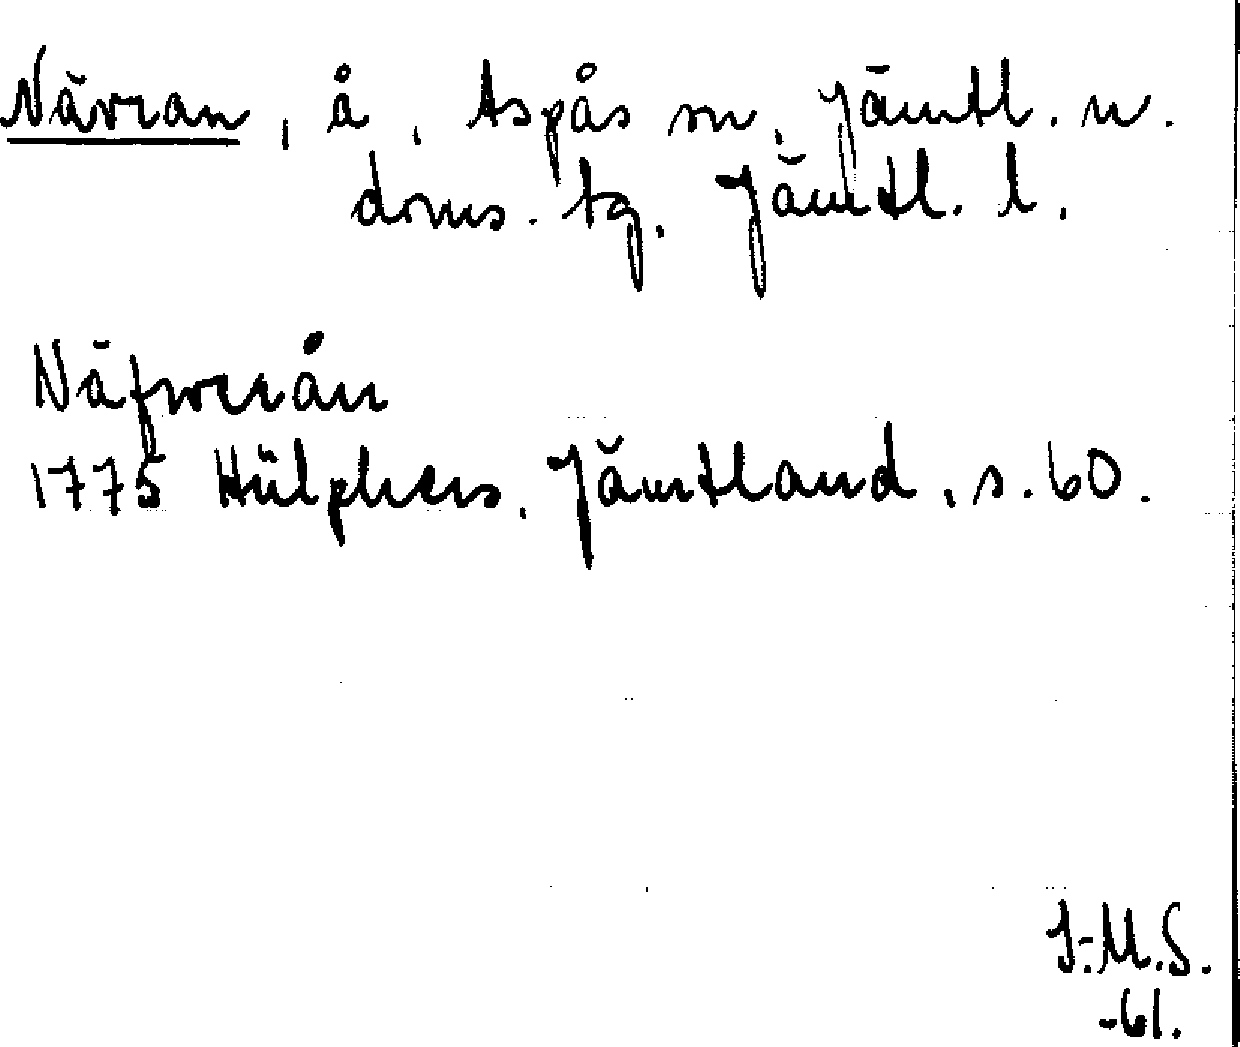 Nävran, å, Aspås sn, Jämtl. n.
doms. tg. Jämtl. l.
Näfwerån
1775 Hülphers, Jämtland, s. 60.
I-M.S.
-61.